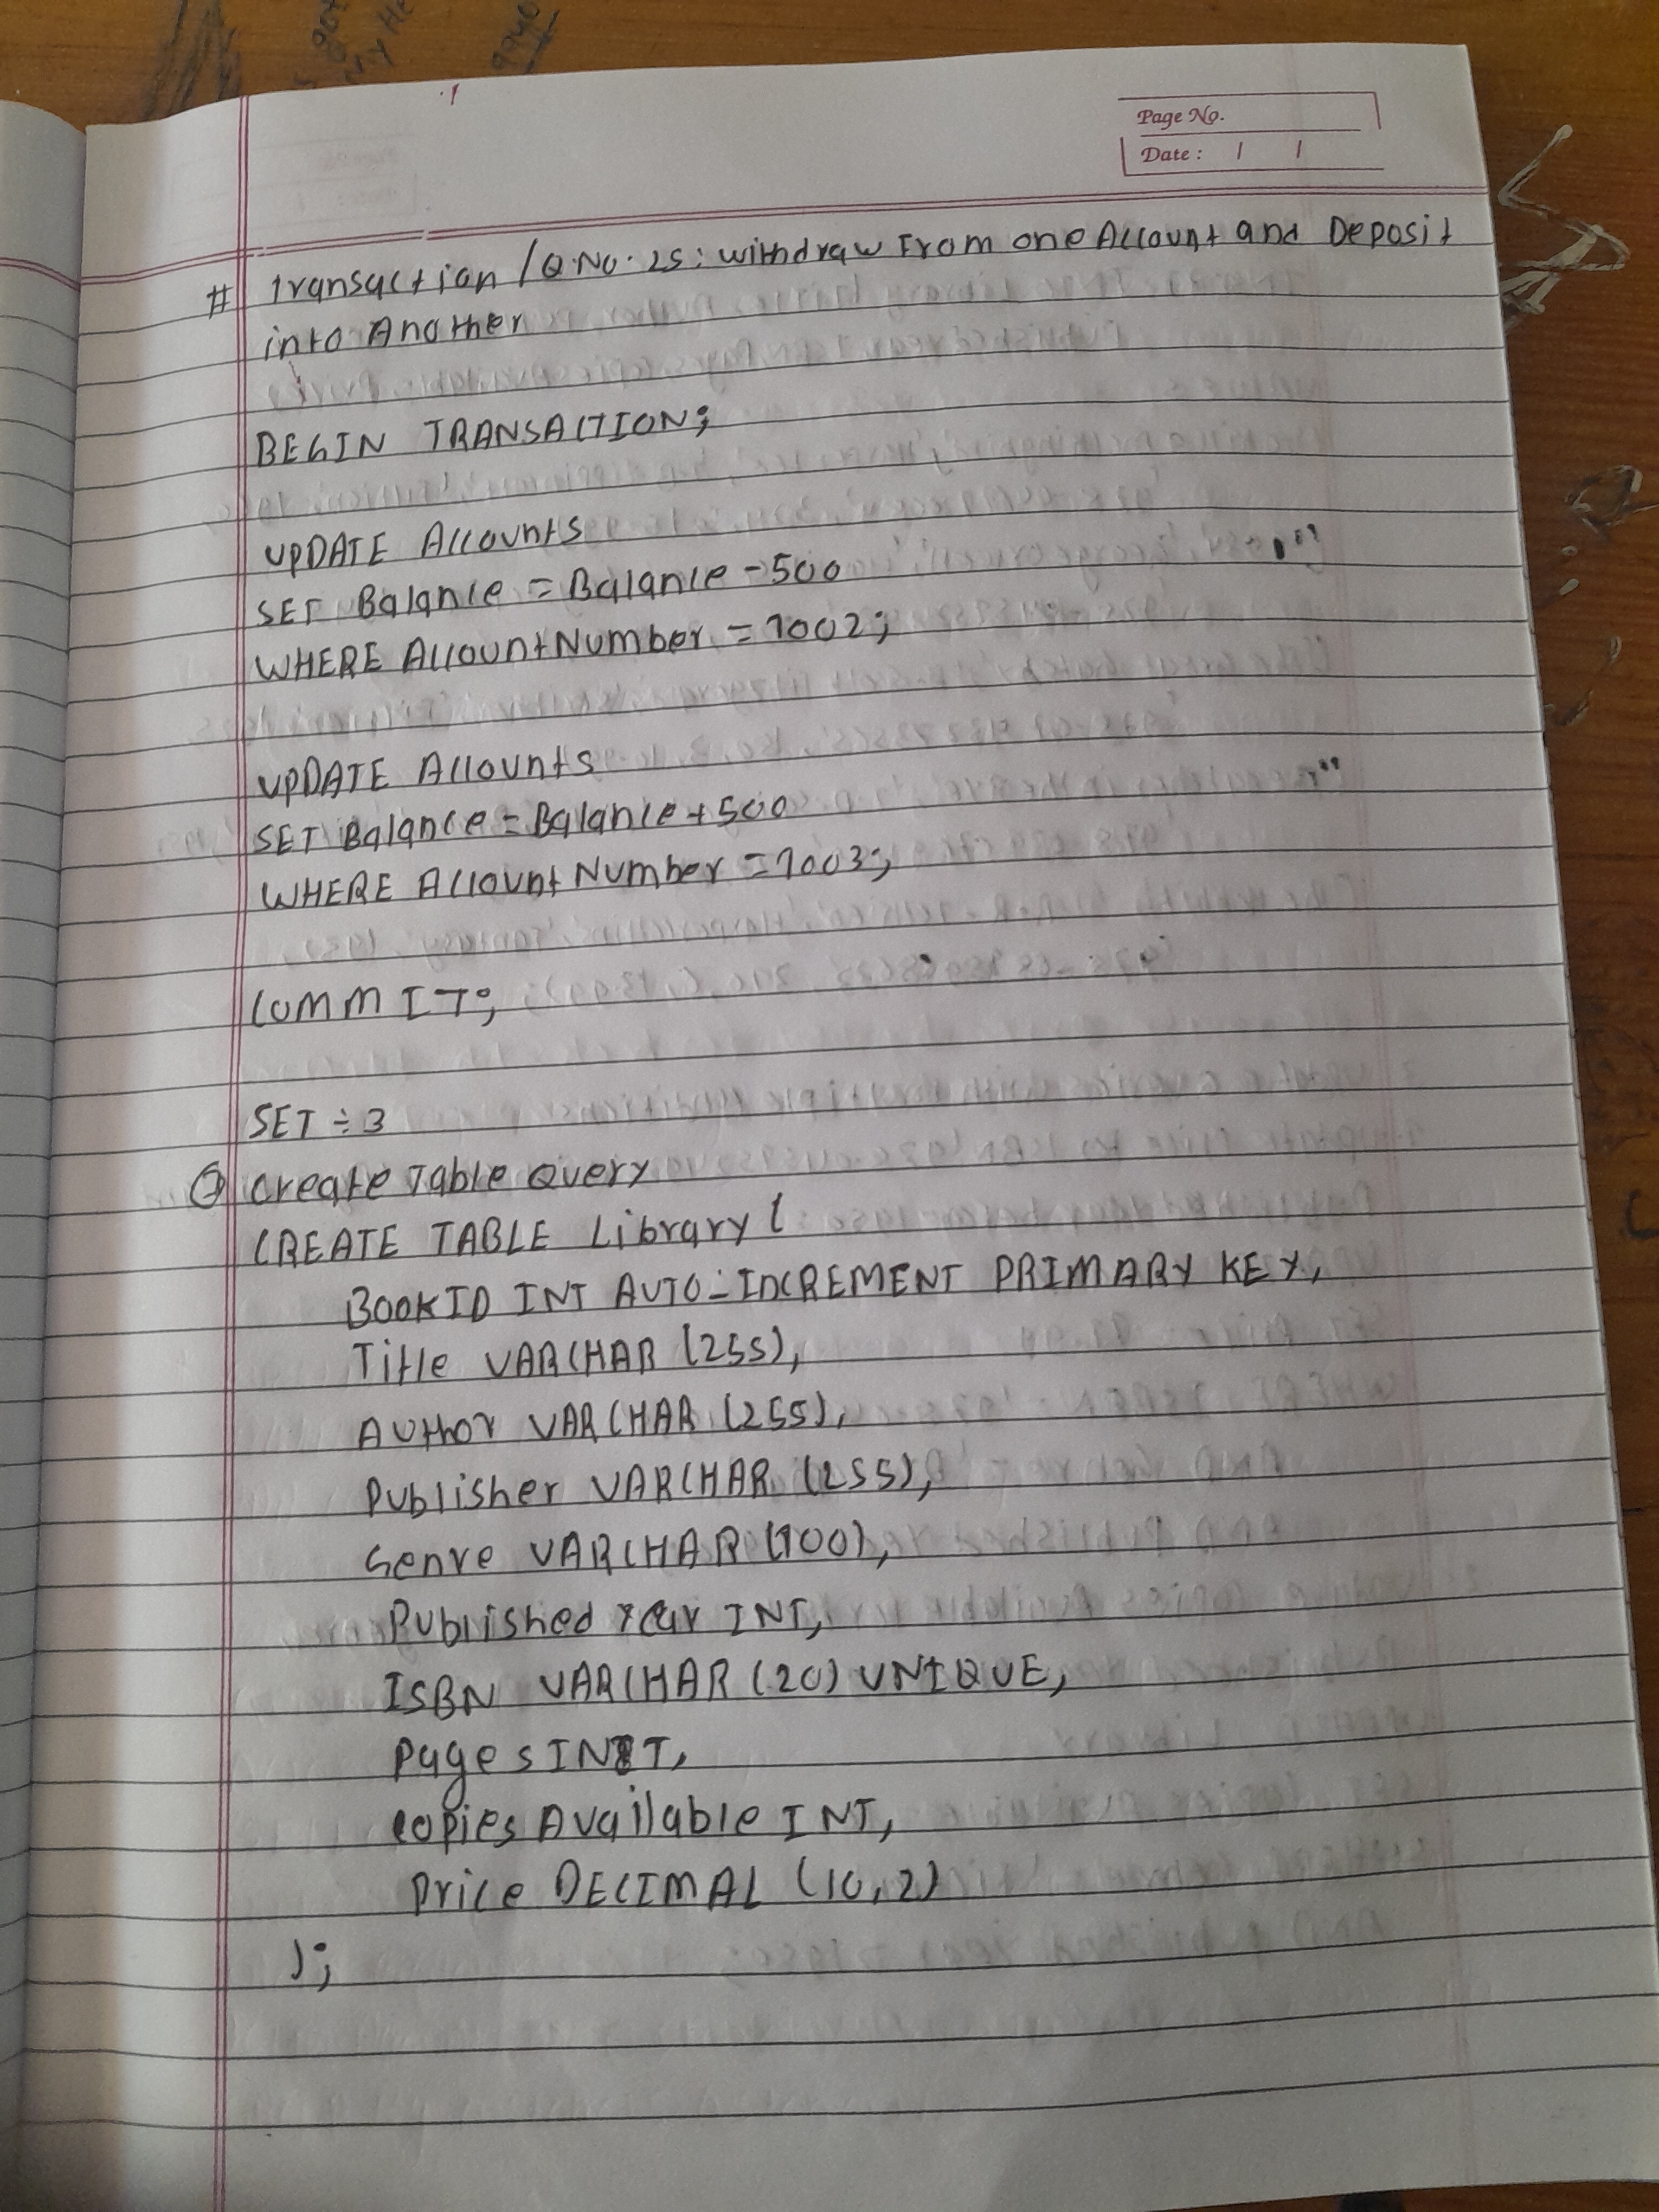 Page No.
Date : / /
# Transaction / Q.No. 25: withdraw From one Account and Deposit
into Another
BEGIN TRANSACTION;
UPDATE Accounts
SET Balance = Balance - 500
WHERE AccountNumber = 1002;
UPDATE Accounts
SET Balance = Balance + 500
WHERE AccountNumber = 1003;
COMMIT;
SET ÷ 3
Create Table Query
CREATE TABLE Library (
BOOKID INT AUTO_INCREMENT PRIMARY KEY,
Title VARCHAR (255),
Author VARCHAR (255),
Publisher VARCHAR (255),
Genre VARCHAR (100),
Published Year INT,
ISBN VARCHAR (20) UNIQUE,
Pages INT,
copies Available INT,
Price DECIMAL (10,2)
);